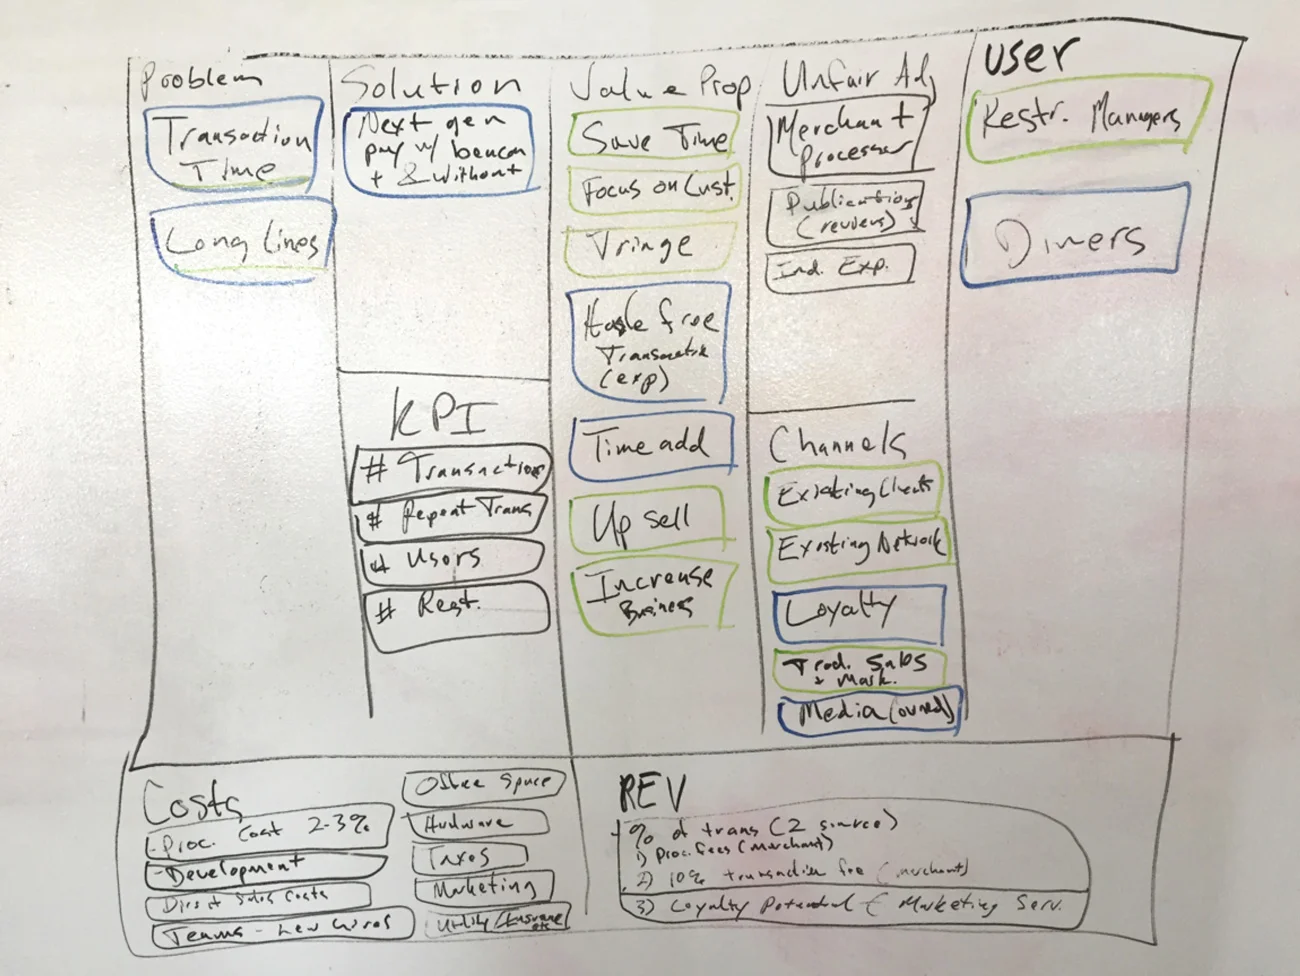 Problem
Transaction
Time
Long Lines
Solution
Next gen
pay w/ beacon
+ & without
KPI
# Transactions
# Repeat Trans
# Users
# Rest.
Value Prop
Save Time
Focus on Cust.
Hassle free
Transaction
(exp)
Time add
Up sell
Increase
Business
Unfair Adj
Merchant
Processor
Publications
(reviews)
Ind. Exp.
Channels
Existing Clients
Existing Network
Loyalty
Trad. Sales
+ Mark.
Media (owned)
User
Restr. Managers
Diners
Costs
- Proc. Cost 2-3%
- Development
Direct Sales Costs
Teams - new hires
Office Space
Hardware
Taxes
Marketing
Utility / Insurance
etc
REV
% of trans (2 source)
1) Proc. fees (merchant)
2) 10% transaction fee (merchant)
3) Loyalty Potential Marketing Serv.